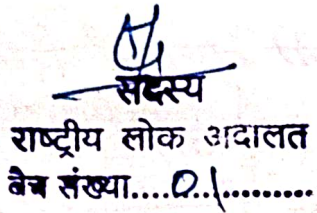 सदस्य
राष्ट्रीय लोक अदालत
बेंच संख्या....01.........